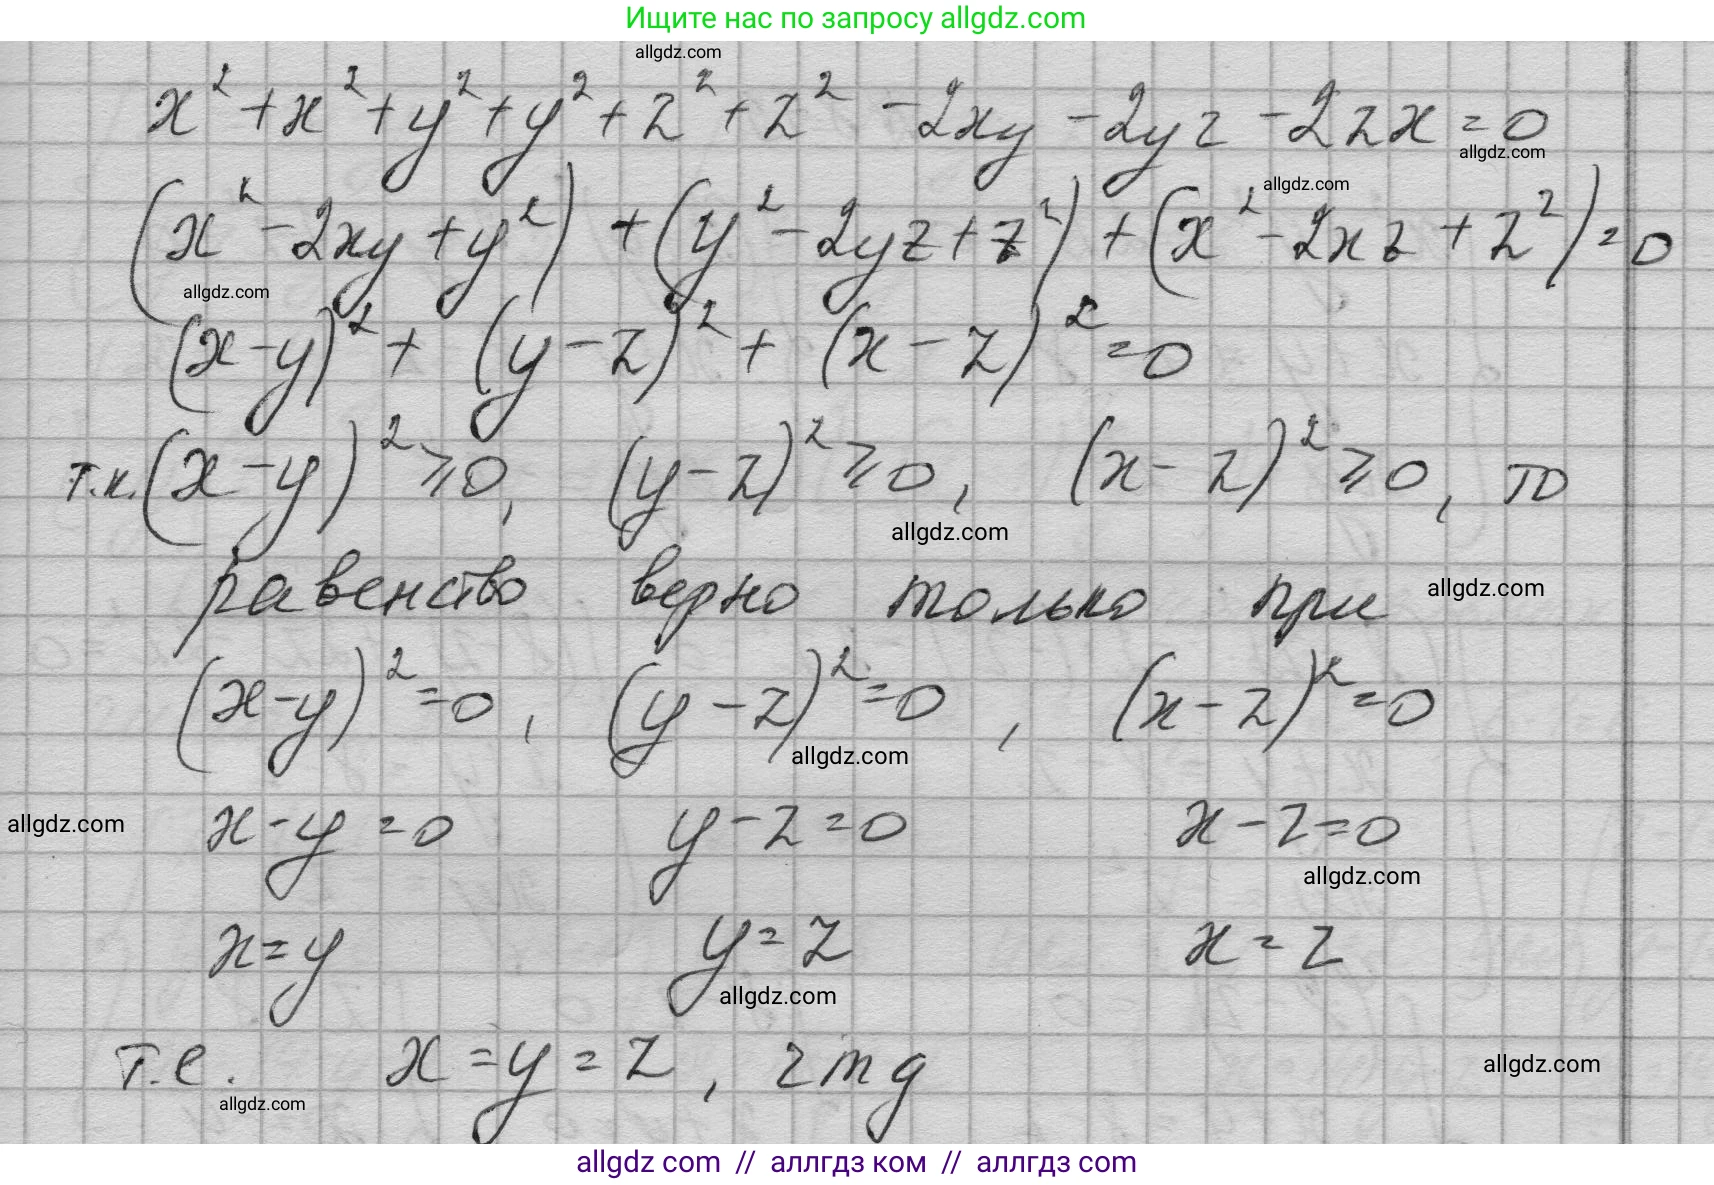 Ищите нас по запросу allgdz.com
allgdz.com
x² + x² + y² + y² + z² + z² - 2xy - 2yz - 2zx = 0
allgdz.com
allgdz.com
(x² - 2xy + y²) + (y² - 2yz + z²) + (x² - 2xz + z²) = 0
allgdz.com
(x - y)² + (y - z)² + (x - z)² = 0
т.к. (x - y)² ⩾ 0, (y - z)² ⩾ 0, (x - z)² ⩾ 0, то
allgdz.com
равенство верно только при
allgdz.com
(x - y)² = 0, (y - z)² = 0, (x - z)² = 0
allgdz.com
allgdz.com
x - y = 0 y - z = 0 x - z = 0
allgdz.com
x = y y = z x = z
allgdz.com
т.е. x = y = z, чтд
allgdz.com
allgdz.com
allgdz com // аллгдз ком // аллгдз com